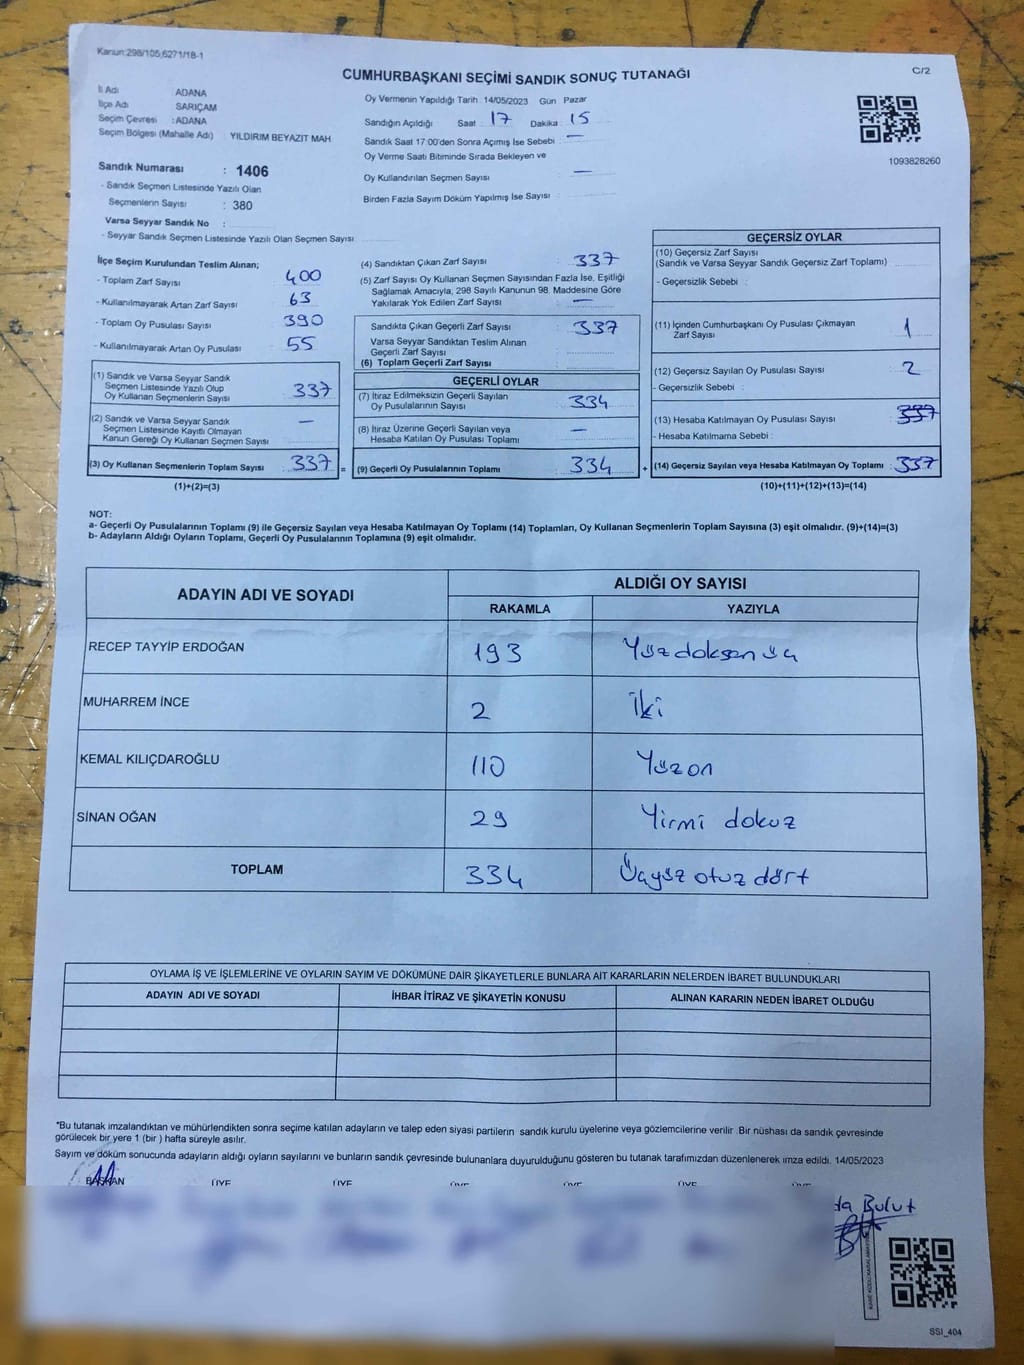 Kanun:298/105,6271/18-1
C/2
CUMHURBAŞKANI SEÇİMİ SANDIK SONUÇ TUTANAĞI
İl Adı : ADANA
İlçe Adı SARIÇAM
Seçim Çevresi : ADANA
Seçim Bölgesi (Mahalle Adı) : YILDIRIM BEYAZIT MAH.
Sandık Numarası : 1406
- Sandık Seçmen Listesinde Yazılı Olan
Seçmenlerin Sayısı : 380
Varsa Seyyar Sandık No :
- Seyyar Sandık Seçmen Listesinde Yazılı Olan Seçmen Sayısı
Oy Vermenin Yapıldığı Tarih : 14/05/2023 Gün Pazar
Sandığın Açıldığı Saat : 17 Dakika 15
Sandık Saat 17:00'den Sonra Açımış İse Sebebi : —
Oy Verme Saati Bitiminde Sırada Bekleyen ve
Oy Kullandırılan Seçmen Sayısı —
Birden Fazla Sayım Döküm Yapılmış İse Sayısı
1093828260
İlçe Seçim Kurulundan Teslim Alınan;
- Toplam Zarf Sayısı : 400
- Kullanılmayarak Artan Zarf Sayısı 63
- Toplam Oy Pusulası Sayısı : 390
- Kullanılmayarak Artan Oy Pusulası 55
(1) Sandık ve Varsa Seyyar Sandık
Seçmen Listesinde Yazılı Olup
Oy Kullanan Seçmenlerin Sayısı 337
(2) Sandık ve Varsa Seyyar Sandık
Seçmen Listesinde Kayıtlı Olmayan
Kanun Gereği Oy Kullanan Seçmen Sayısı —
(3) Oy Kullanan Seçmenlerin Toplam Sayısı 337 =
(1)+(2)=(3)
(4) Sandıktan Çıkan Zarf Sayısı : 337
(5) Zarf Sayısı Oy Kullanan Seçmen Sayısından Fazla İse, Eşitliği
Sağlamak Amacıyla, 298 Sayılı Kanunun 98. Maddesine Göre
Yakılarak Yok Edilen Zarf Sayısı —
Sandıkta Çıkan Geçerli Zarf Sayısı : 337
Varsa Seyyar Sandıktan Teslim Alınan
Geçerli Zarf Sayısı
(6) Toplam Geçerli Zarf Sayısı
GEÇERLİ OYLAR
(7) İtiraz Edilmeksizin Geçerli Sayılan
Oy Pusulalarının Sayısı 334
(8) İtiraz Üzerine Geçerli Sayılan veya
Hesaba Katılan Oy Pusulası Toplamı —
(9) Geçerli Oy Pusulalarının Toplamı 334 +
GEÇERSİZ OYLAR
(10) Geçersiz Zarf Sayısı
(Sandık ve Varsa Seyyar Sandık Geçersiz Zarf Toplamı)
- Geçersizlik Sebebi :
(11) İçinden Cumhurbaşkanı Oy Pusulası Çıkmayan
Zarf Sayısı 1
(12) Geçersiz Sayılan Oy Pusulası Sayısı : 2
- Geçersizlik Sebebi :
(13) Hesaba Katılmayan Oy Pusulası Sayısı 337
- Hesaba Katılmama Sebebi :
(14) Geçersiz Sayılan veya Hesaba Katılmayan Oy Toplamı : 337
(10)+(11)+(12)+(13)=(14)
NOT:
a- Geçerli Oy Pusulalarının Toplamı (9) ile Geçersiz Sayılan veya Hesaba Katılmayan Oy Toplamı (14) Toplamları, Oy Kullanan Seçmenlerin Toplam Sayısına (3) eşit olmalıdır. (9)+(14)=(3)
b- Adayların Aldığı Oyların Toplamı, Geçerli Oy Pusulalarının Toplamına (9) eşit olmalıdır.
ADAYIN ADI VE SOYADI ALDIĞI OY SAYISI
RAKAMLA YAZIYLA
RECEP TAYYİP ERDOĞAN 193 Yüz doksan üç
MUHARREM İNCE 2 İki
KEMAL KILIÇDAROĞLU 110 Yüz on
SİNAN OĞAN 29 Yirmi dokuz
TOPLAM 334 Üçyüz otuz dört
OYLAMA İŞ VE İŞLEMLERİNE VE OYLARIN SAYIM VE DÖKÜMÜNE DAİR ŞİKAYETLERLE BUNLARA AİT KARARLARIN NELERDEN İBARET BULUNDUKLARI
ADAYIN ADI VE SOYADI İHBAR İTİRAZ VE ŞİKAYETİN KONUSU ALINAN KARARIN NEDEN İBARET OLDUĞU
*Bu tutanak imzalandıktan ve mühürlendikten sonra seçime katılan adayların ve talep eden siyasi partilerin sandık kurulu üyelerine veya gözlemcilerine verilir .Bir nüshası da sandık çevresinde
görülecek bir yere 1 (bir ) hafta süreyle asılır.
Sayım ve döküm sonucunda adayların aldığı oyların sayılarını ve bunların sandık çevresinde bulunanlara duyurulduğunu gösteren bu tutanak tarafımızdan düzenlenerek imza edildi. 14/05/2023
BAŞKAN ÜYE ÜYE ÜYE ÜYE ÜYE ÜYE
da Bulut
SSI_404